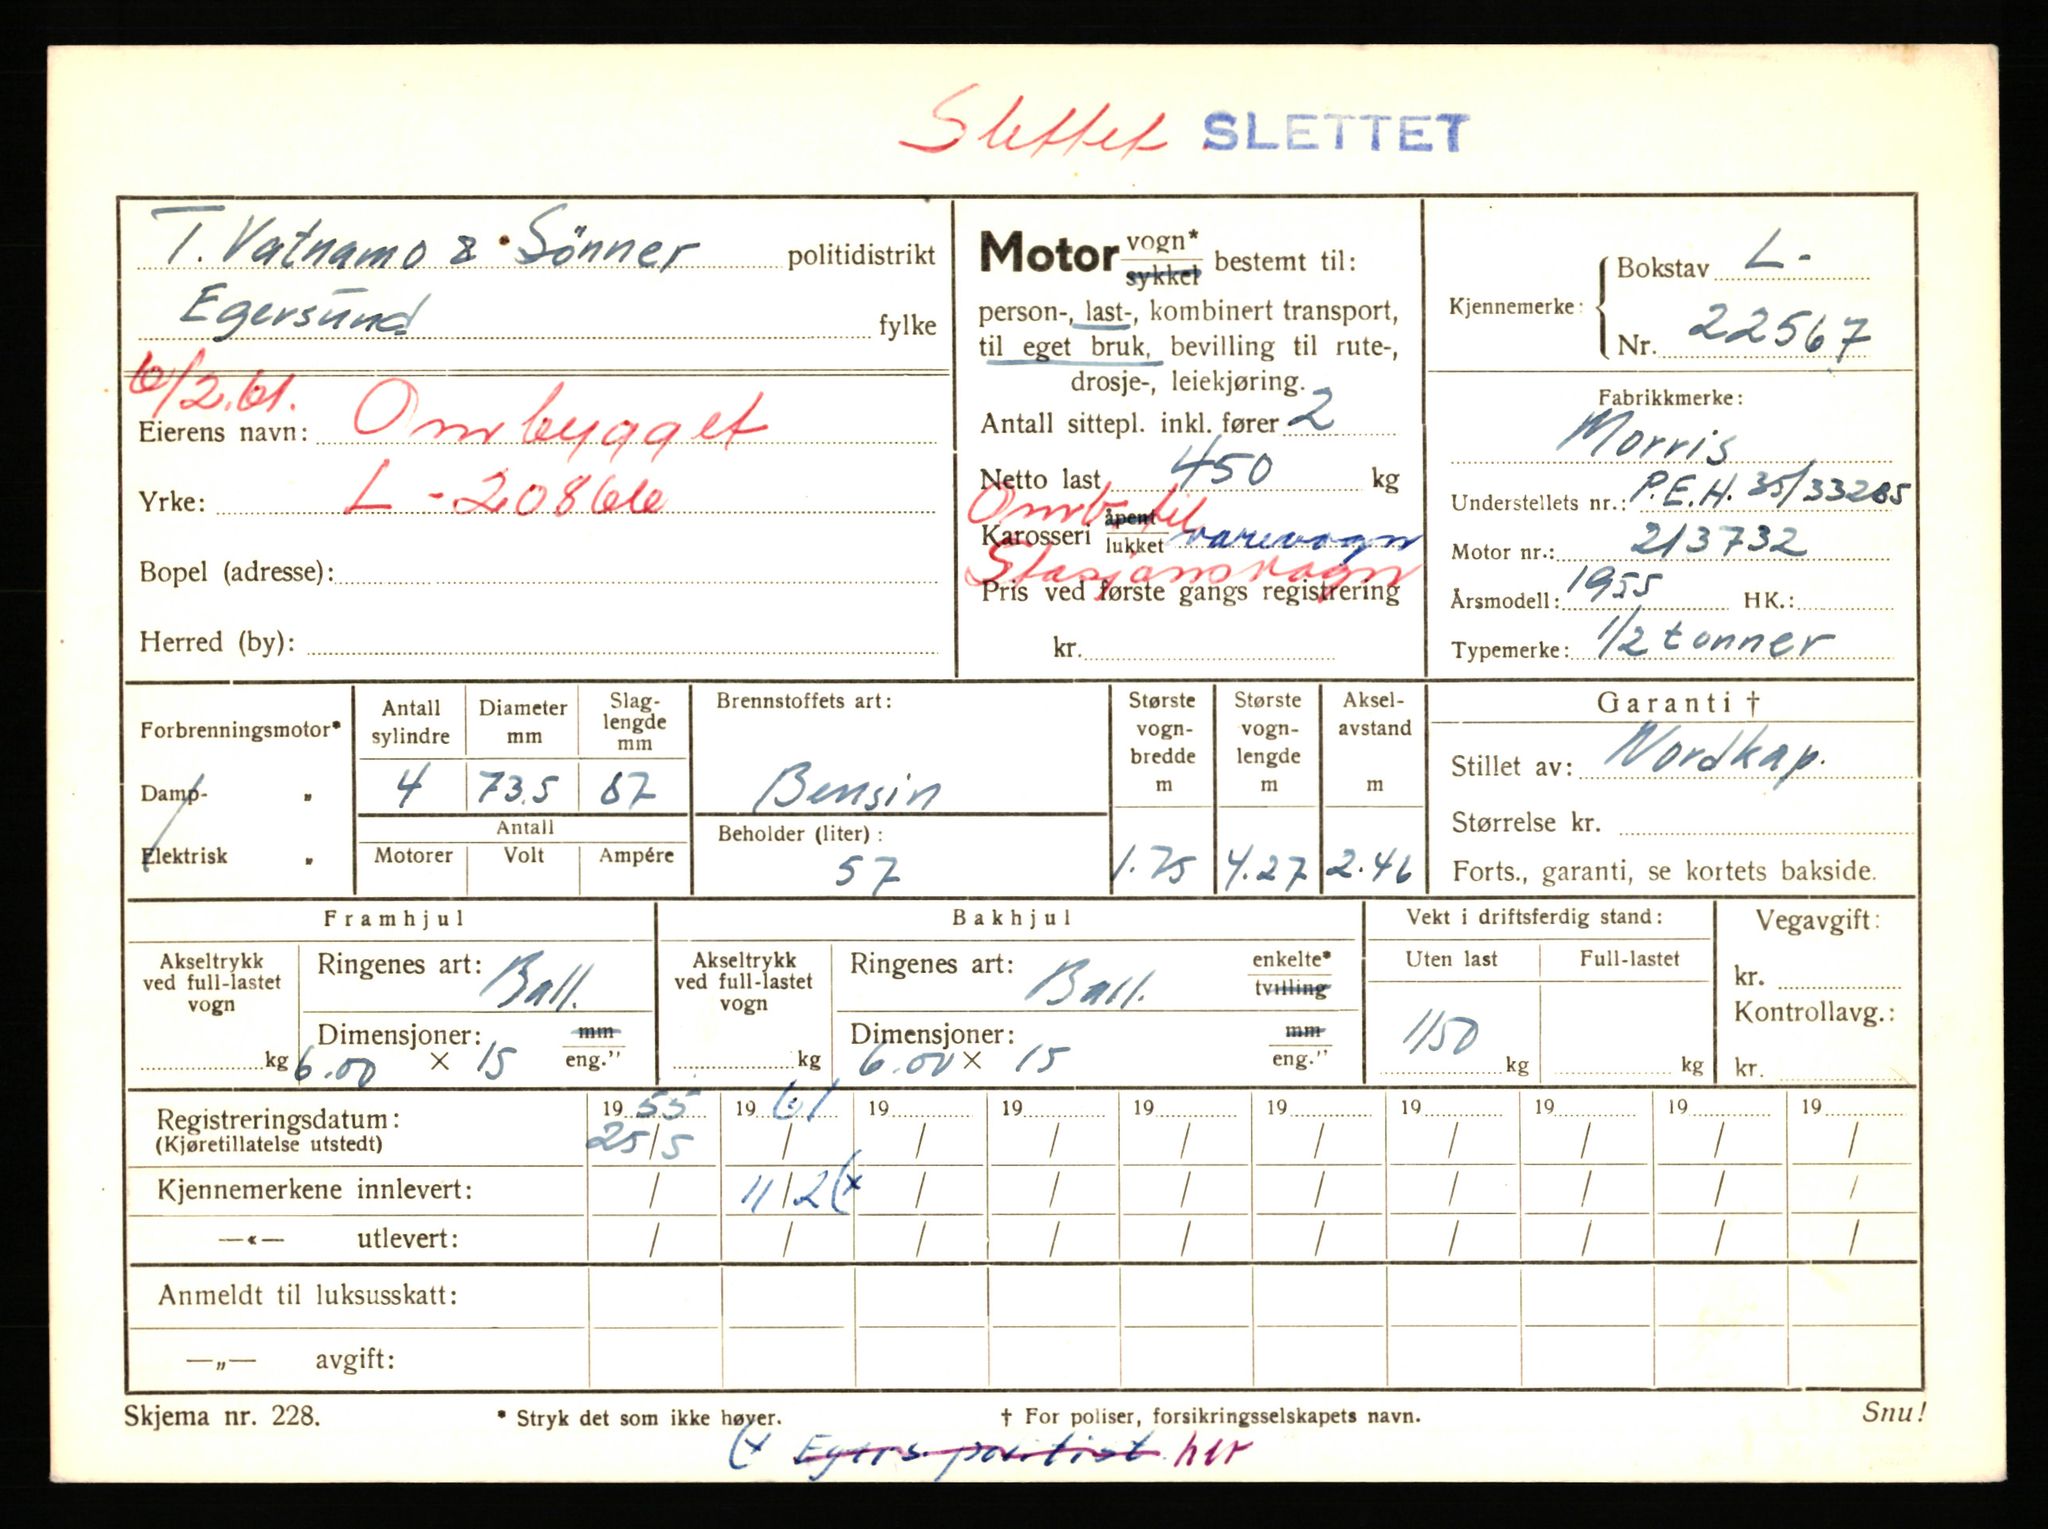 Slettet SLETTET
T. Vatnamo & Sönner politidistrikt
Egersund fylke
6/2.61.
Eierens navn: Ombygget
Yrke: L - 20866
Bopel (adresse):
Herred (by):
Motor vogn* sykkel bestemt til:
person-, last-, kombinert transport,
til eget bruk, bevilling til rute-,
drosje-, leiekjøring.
Antall sittepl. inkl. fører 2
Netto last 450 kg
Omb. til
Karosseri åpent lukket varevogn
Stasjonsvogn
Pris ved første gangs registrering
kr.
Kjennemerke: Bokstav L-
Nr. 22567
Fabrikkmerke:
Morris
Understellets nr.: P.E.H. 35/33285
Motor nr.: 213732
Årsmodell: 1955 HK.:
Typemerke: 1/2 tonner
Forbrenningsmotor*
Damp- „
Elektrisk „
Antall sylindre
4
Diameter mm
73.5
Slag-lengde mm
87
Antall
Motorer Volt Ampére
Brennstoffets art:
Bensin
Beholder (liter):
57
Største vogn-bredde m
1.75
Største vogn-lengde m
4.27
Aksel-avstand m
2.46
Garanti †
Stillet av: Nordkap.
Størrelse kr.
Forts., garanti, se kortets bakside.
Framhjul
Akseltrykk ved full-lastet vogn
kg
Ringenes art: Ball.
Dimensjoner: mm
6.00 × 15 eng."
Bakhjul
Akseltrykk ved full-lastet vogn
kg
Ringenes art: Ball. enkelte* tvilling
Dimensjoner: mm
6.00 × 15 eng."
Vekt i driftsferdig stand:
Uten last Full-lastet
1150 kg kg
Vegavgift:
kr.
Kontrollavg.:
kr.
Registreringsdatum: 19 55 19 61 19 19 19 19 19 19 19 19
(Kjøretillatelse utstedt) 25/5 / / / / / / / / /
Kjennemerkene innlevert: / 11/2 (x / / / / / / / /
—«— utlevert: / / / / / / / / / /
Anmeldt til luksusskatt:
—„— avgift:
Skjema nr. 228. * Stryk det som ikke høver. † For poliser, forsikringsselskapets navn. Snu!
(x Egers. politist. her